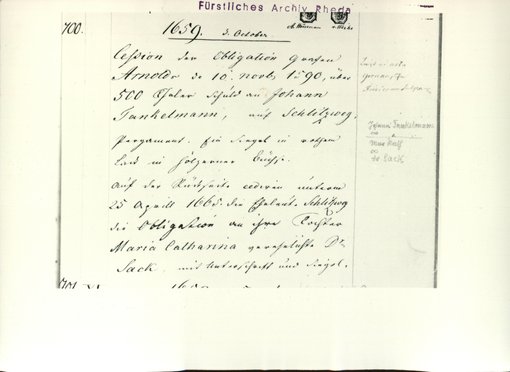 Fürstliches Archiv Rheda
700.
1659. 3. October.
Cession der Obligation Grafen
Arnolds de 10. novb. 1590, über
500 Thaler Schuld an Johann
Funkelmann, auf Schlitzweg.
Pergament. Ein Siegel in rothem
Lack in hölzerner Büchse.
Auf der Rückseite cediren unterm
25 Aprill 1665. die Eheleute Schlitzweg
die Obligation an ihre Tochter
Maria Catharina verehelichte Dr.
Sack, mit Unterschrift und Siegel.
Johann Funkelmann
∞
∞
Dr Sack
701.